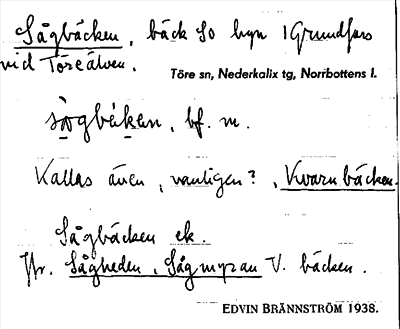 Sågbäcken, bäck SO byn i Grundfors
vid Töreälven.
Töre sn, Nederkalix tg, Norrbottens l.
bf. m.
Kallas även, vanligen?, Kvarnbäcken.
Sågbäcken ek.
Jfr. Sågheden, Sågmyran V. bäcken.
EDVIN BRÄNNSTRÖM 1938.